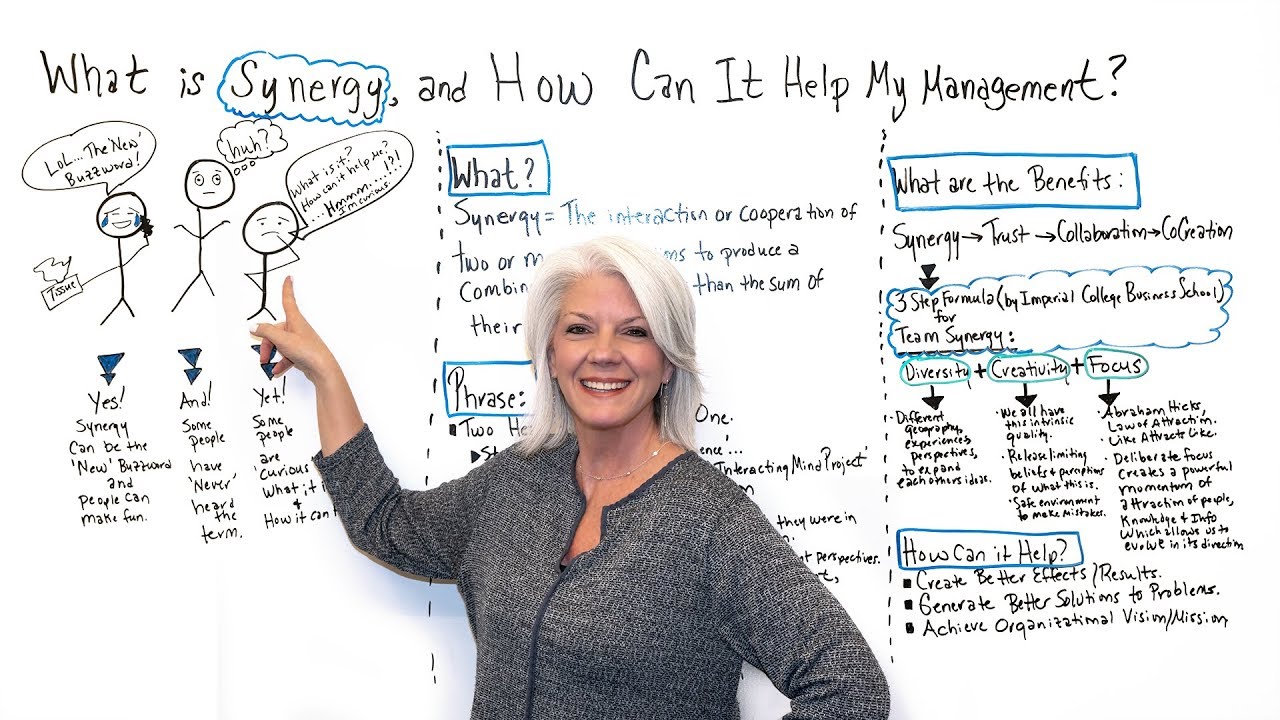 What is Synergy, and How Can It Help My Management?
LoL... The 'New'
Buzzword!
huh?
What is it?
How can it help Me?
...Hmmmm....!?!
I'm curious.
Tissue
Yes!
Synergy
Can be the
'New' Buzzword
and
people can
make fun.
And!
Some
people
have
'Never'
heard
the
term.
Yet!
Some
people
are
'curious
What it
&
How it can
What?
Synergy = The interaction or cooperation of
two or to produce a
than the sum of
their
Phrase:
Two One.
Interacting Mind Project'
they were in
perspectives.
What are the Benefits:
Synergy → Trust → Collaboration → CoCreation
3 Step Formula (by Imperial College Business School)
for
Team Synergy:
Diversity + Creativity + Focus
• Different
geography,
experiences,
perspectives,
to expand
each others ideas.
• We all have
this intrinsic
quality.
• Release limiting
beliefs & perceptions
of what this is.
• Safe environment
to make mistakes.
• Abraham Hicks,
Law of Attraction.
• Like Attracts Like.
• Deliberate focus
Creates a powerful
momentum of
attraction of people,
Knowledge & Info
Which allows us to
evolve in its direction
How Can it Help?
▪ Create Better Effects/Results.
▪ Generate Better Solutions to Problems.
▪ Achieve Organizational Vision/Mission